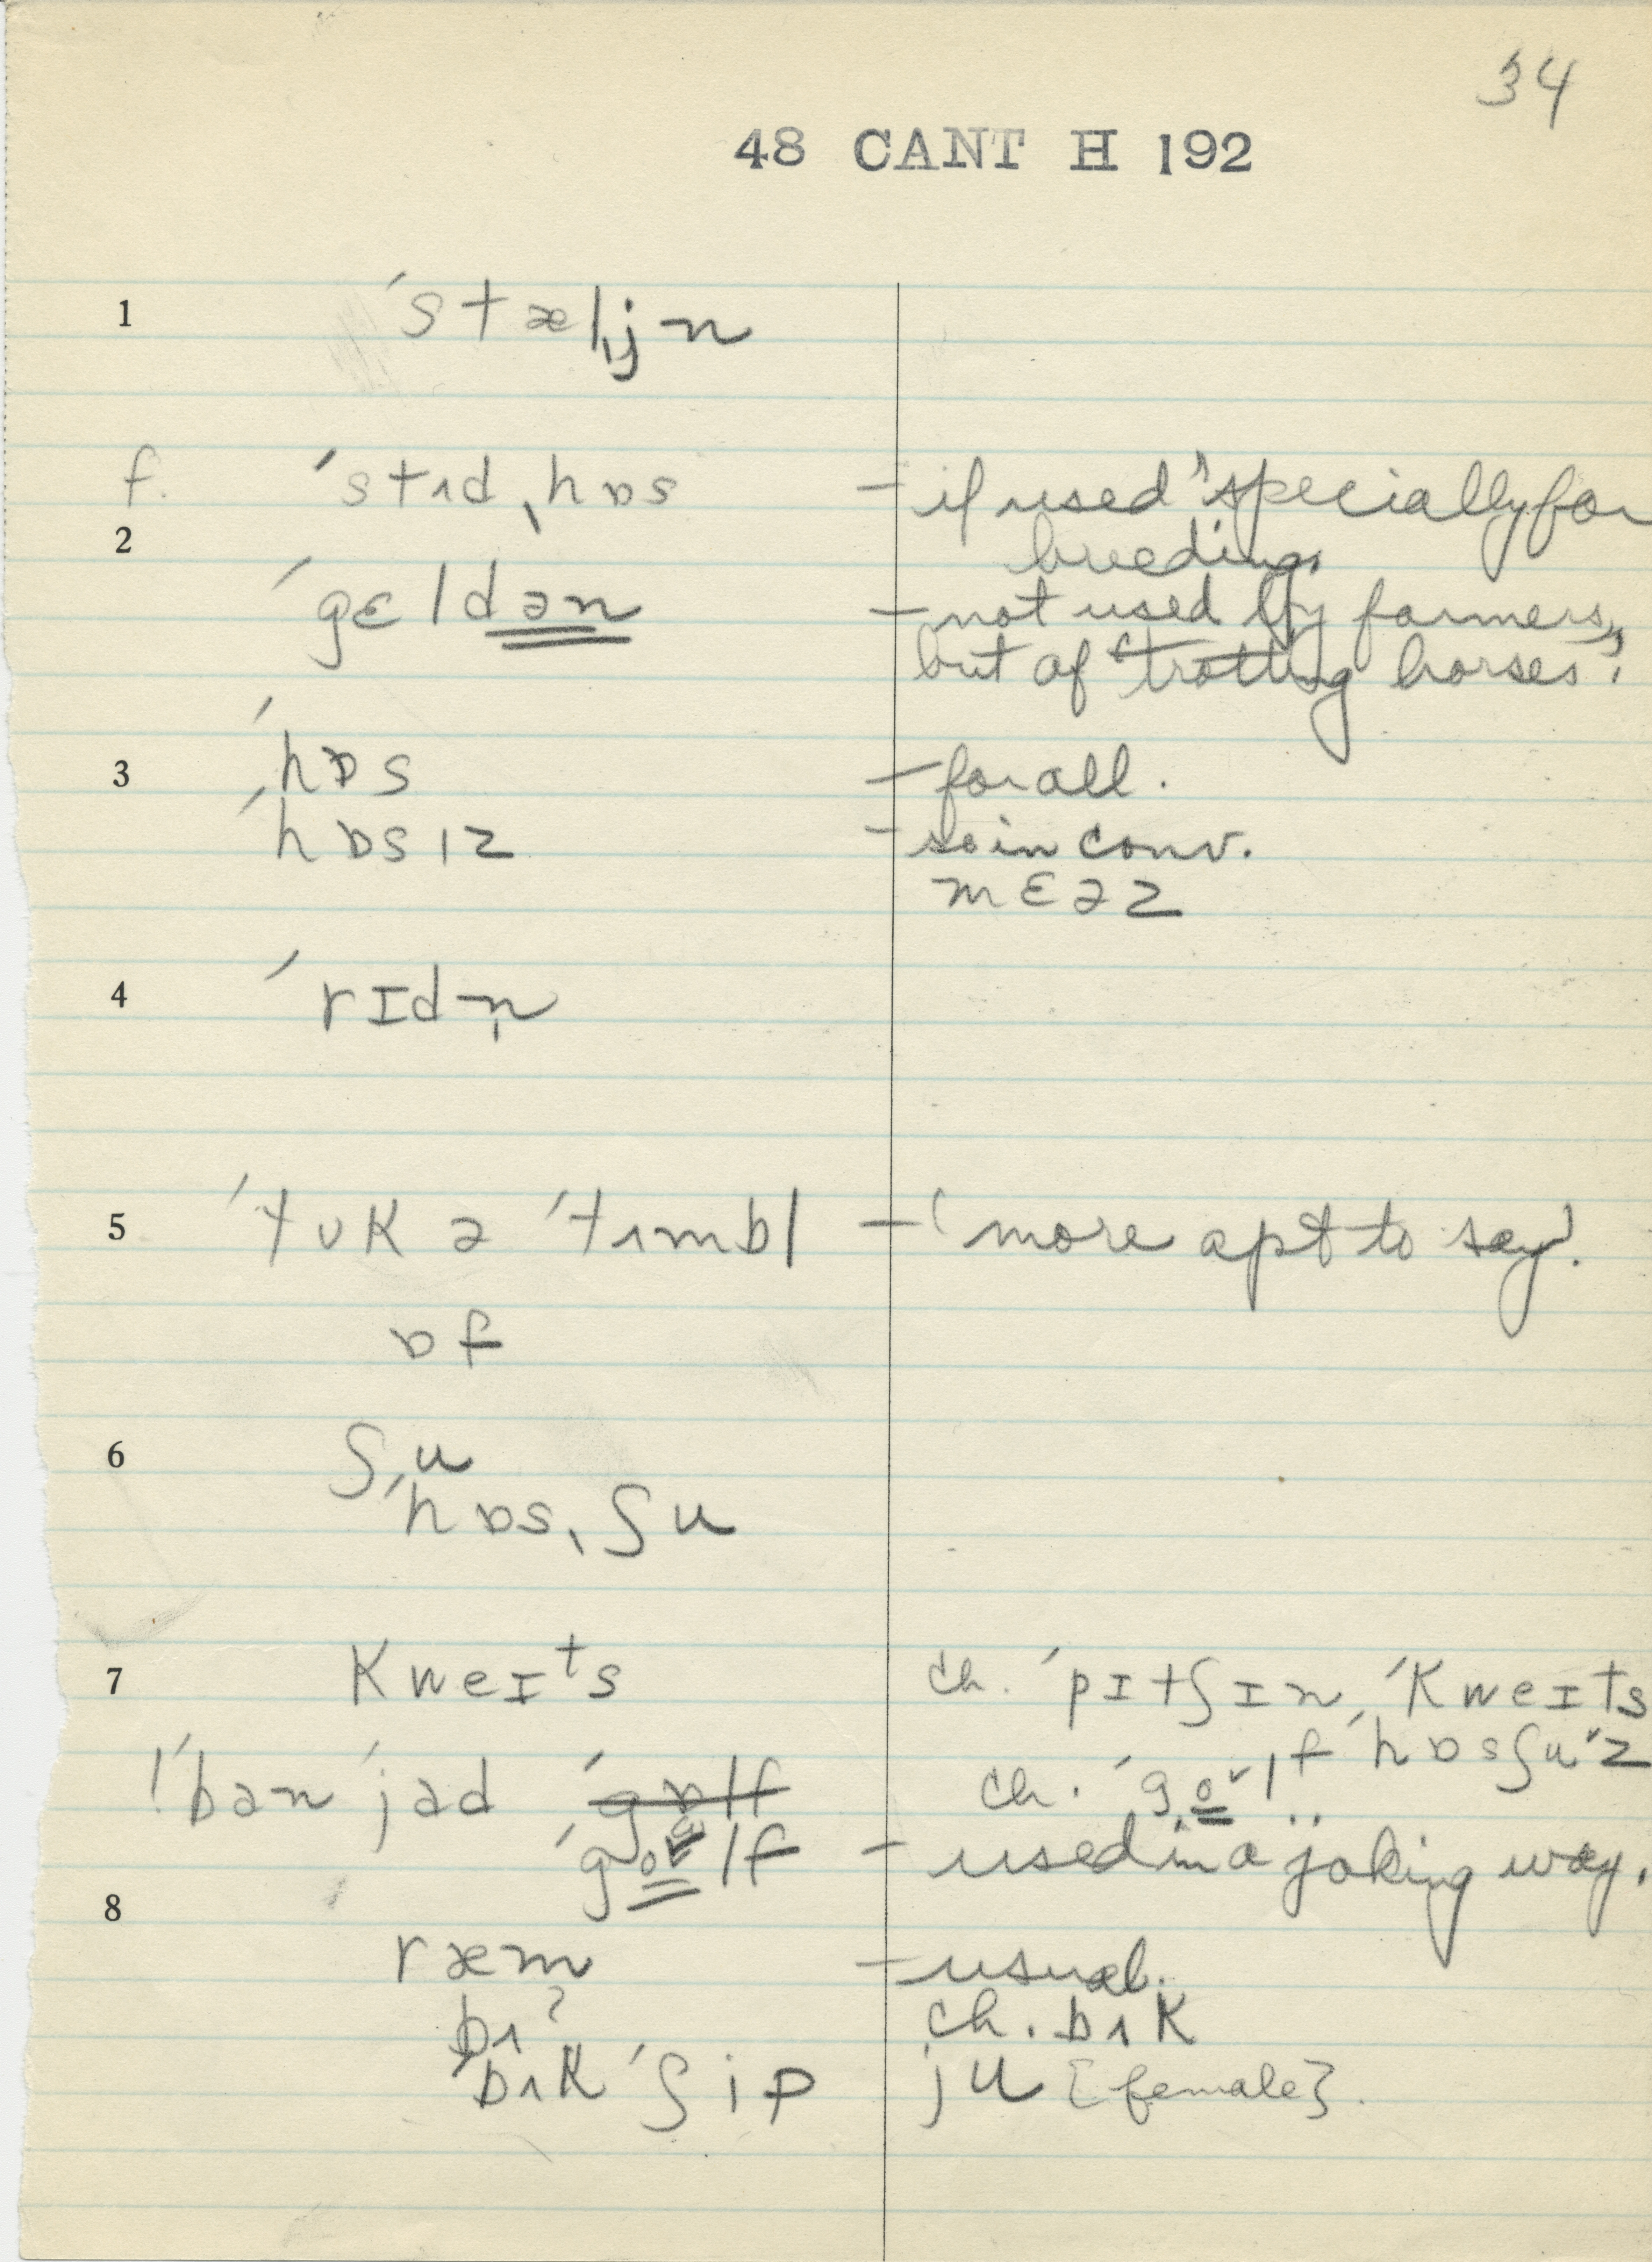 34
48 CANT H 192
1 ˈstælˌjn
f. ˈstʌdˌhɒs – if used "specially for
2 breeding.
ˈgɛldən – not used by farmers,
but of "trotting horses".
3 ˈhɒs – for all.
ˈhɒsɪz – so in conv.
mɛəz
4 ˈrɪdn̩
5 ˈtʊk ə ˈtʌmbl – 'more apt to say'.
ɒf
6 ʃu
ˈhɒsˌʃu
7 kweɪᵗs ch. ˈpɪtʃɪn ˈkweɪts
f ˈhɒsʃuˑz
!ˈbən ˈjəd ˈgɒlf ch. ˈgo˅lf
ˈgo˅lf – used in a joking way.
8
ræm – usual.
bʌˀ ch. bʌk
ˈbʌk ˈʃip ju [female].